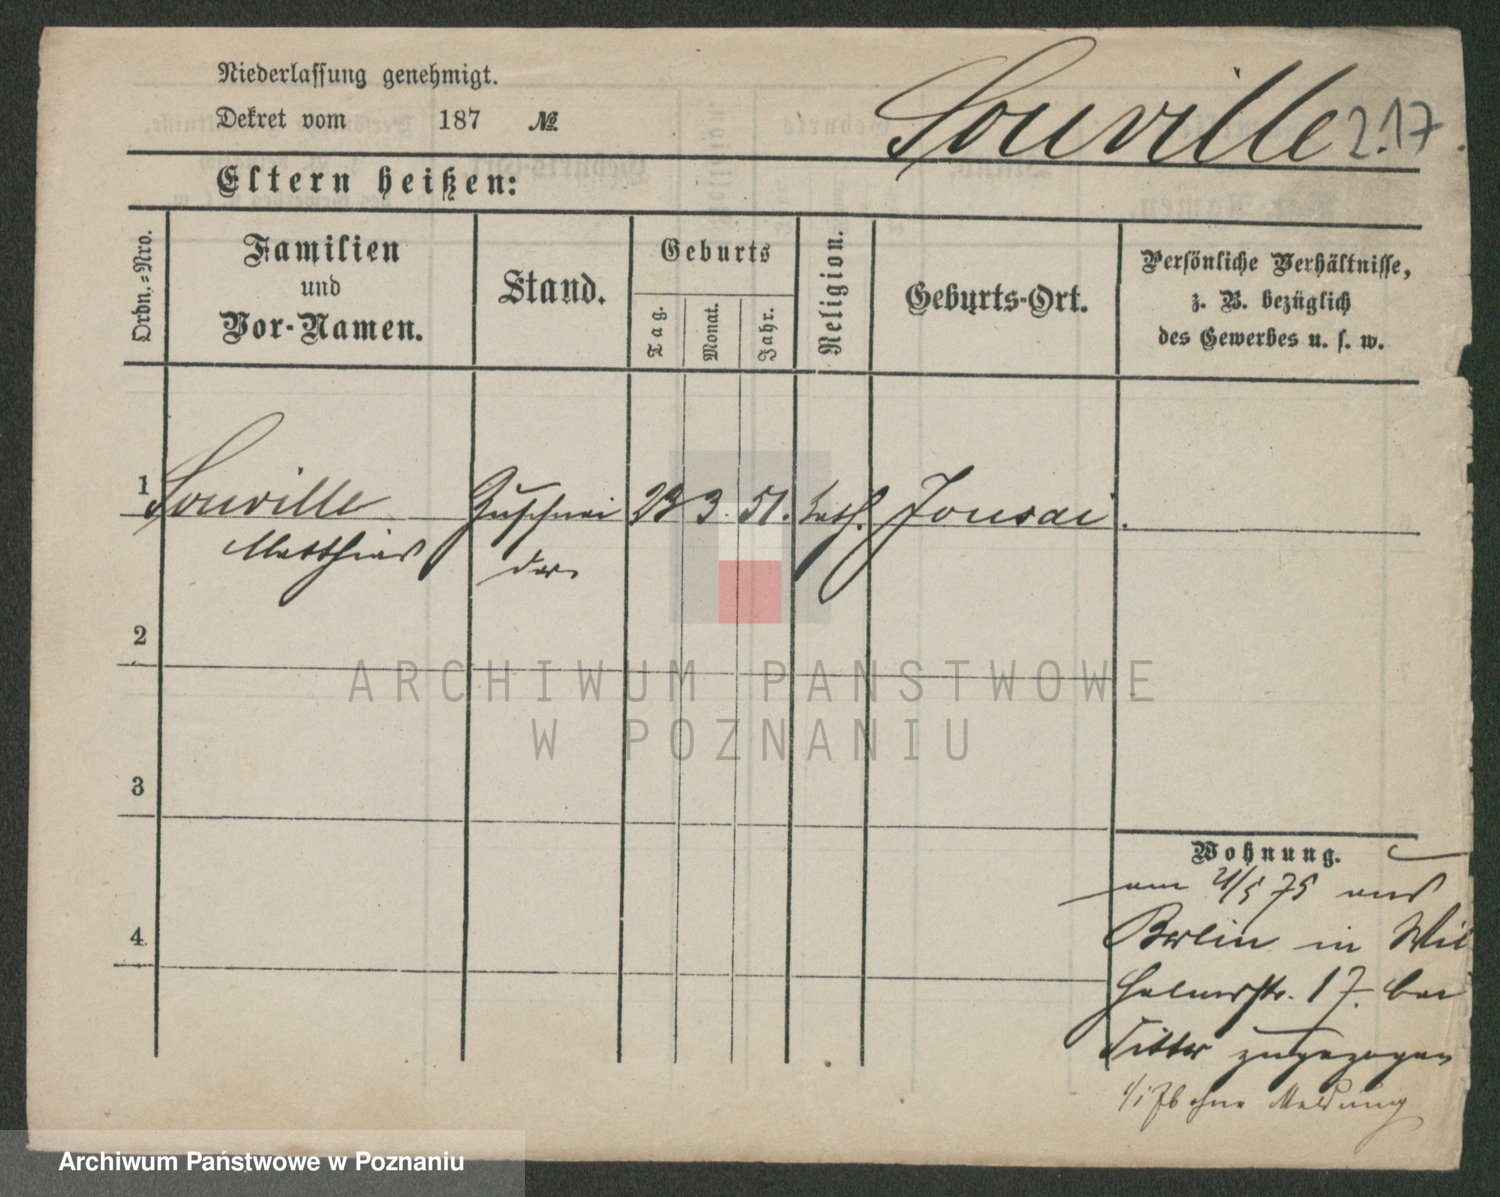 Niederlassung genehmigt.
Dekret vom 187 №
Louville 217.
Eltern heißen:
Ordn.-Nro.
Familien
und
Vor-Namen.
Stand.
Geburts
Tag.
Monat.
Jahr.
Religion.
Geburts-Ort.
Persönliche Verhältnisse,
z. B. bezüglich
des Gewerbes u. s. w.
1 Louville Zuschnei 23 3. 51. kath. Jousai.
Matthias der
2
3
4
Wohnung.
am 21/5 75 aus
Berlin in Wil
helmstr. 17. bei
zugezogen
1/1 76 ohne Meldung
ARCHIWUM PAŃSTWOWE
W POZNANIU
Archiwum Państwowe w Poznaniu